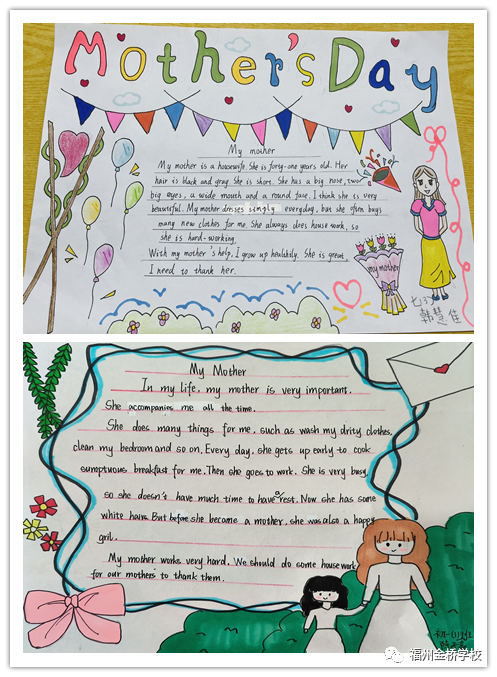 Mother's Day
My mother
My mother is a housewife. She is forty-one years old. Her
hair is black and gray. She is short. She has a big nose, two
big eyes, a wide mouth and a round face. I think she is very
beautiful. My mother dresses simply everyday, but she often buys
many new clothes for me. She always does house work, so
she is hard-working.
With my mother's help, I grow up healthily. She is great.
I need to thank her.
my mother
七(3)
韩慧佳
My Mother
In my life, my mother is very important.
She accompanies me all the time.
She does many things for me, such as wash my drity clothes,
clean my bedroom and so on. Every day, she gets up early to cook
sumptuous breakfast for me. Then she goes to work. She is very busy,
so she doesn't have much time to have a rest. Now she has some
white hairs. But before she became a mother, she was also a happy
gril.
My mother works very hard. We should do some housework
for our mothers to thank them.
福州金桥学校